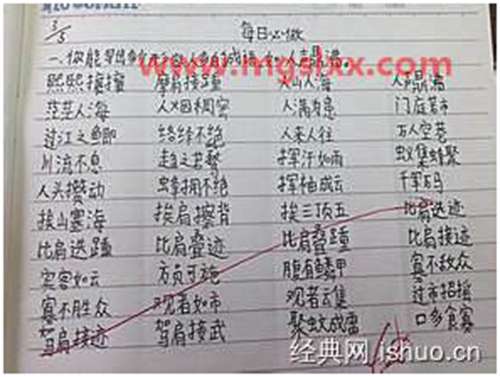 3/5 每日必做
熙熙攘攘 摩肩接踵 人山人海 人声鼎沸
茫茫人海 人烟稠密 人满为患 门庭若市
过江之鲫 络绎不绝 人来人往 万人空巷
川流不息 趋之若鹜 挥汗如雨 蚁集蜂聚
人头攒动 蜂拥不绝 挥袖成云 千军万马
挨山塞海 挨肩擦背 挨三顶五 比肩迭迹
比肩迭踵 比肩叠迹 比肩叠踵 比肩接迹
宾客如云 方员可施 腹有鳞甲 寡不敌众
寡不胜众 观者如市 观者云集 过市招摇
驾肩接迹 驾肩接武 聚蚊成雷 口多食寡
www.mgslxx.com
经典网 ishuo.cn